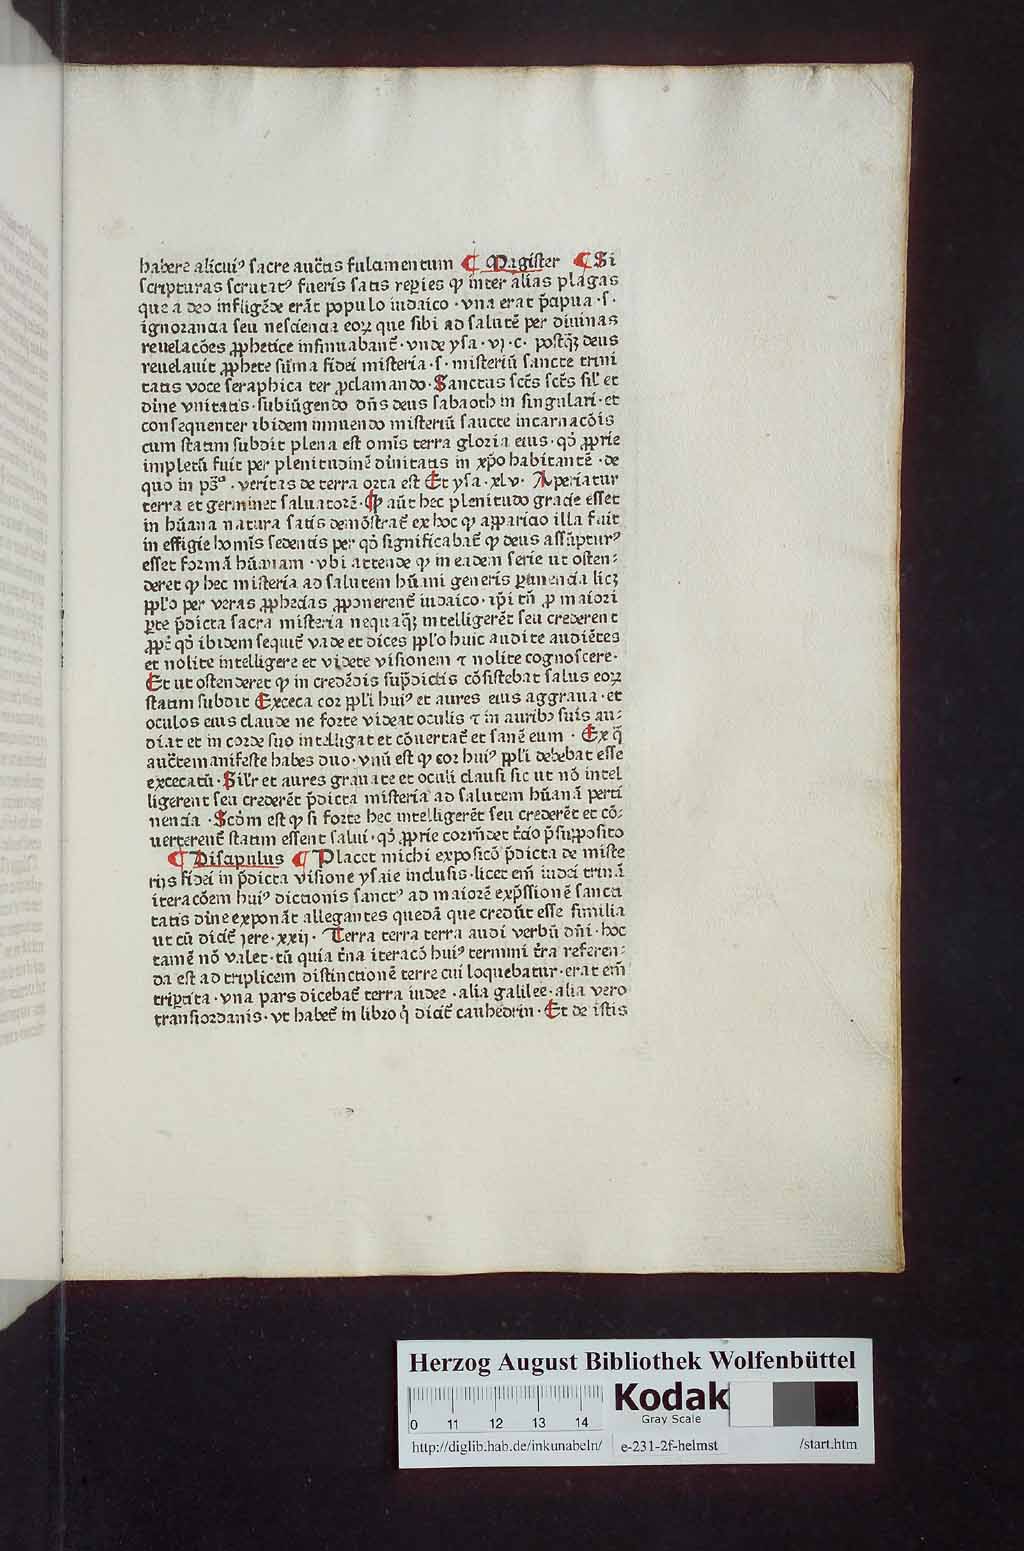 habere alicuiꝰ sacre auctͣtis fulcimentum ¶ Magister ¶ Si
scripturas scrutatꝰ fueris satis reꝑies ꝙ inter alias plagas
que a deo infligẽde erãt populo iudaico · vna erat p̃cipua · s ·
ignorancia seu nesciencia eoꝝ que sibi ad salutẽ per diuinas
reuelacões ꝓphetice insinuabant᷑ · vnde ysa · vj · c · postq̃ꝫ deus
reuelauit ꝓphete sũma fidei misteria · s · misteriũ sancte trini
tatis voce seraphica ter ꝓclamando · Sanctus sct̃s sct̃s sil᷑ et
diñe vnitatis · subiũgendo dñs deus sabaoth in singulari · et
consequenter ibidem innuendo misteriũ sancte incarnacõis
cum statim subdit plena est oms̃ terra gloria eius · qđ ꝓprie
impletũ fuit per plenitudinẽ diuinitatis in xp̃o habitantẽ · de
quo in ps̃ᵒ · veritas de terra orta est Et ysa · xlv · Aperiatur
terra et germinet saluatorẽ · Ꝙ aũt hec plenitudo gracie esset
in hũana natura satis demõstrat᷑ ex hoc ꝙ apparicio illa fuit
in effigie homis̃ sedentis per qđ significabat᷑ ꝙ deus assũpturꝰ
esset formã hũanam · vbi attende ꝙ in eadem serie ut osten⸗
deret ꝙ hec misteria ad salutem hũani generis ꝑtinencia licꝫ
ppl̃o per veras ꝓphecias ꝓponerent᷑ iudaico · ip̃i tñ ꝓ maiori
ꝑte p̃dicta sacra misteria nequaq̃ꝫ intelligerẽt seu crederent
ꝓpt᷑ qđ ibidem sequit᷑ vade et dices ppl̃o huic audite audiẽtes
et nolite intelligere et videte visionem ⁊ nolite cognoscere ·
Et ut ostenderet ꝙ in credẽdis sup̃dictis cõsistebat salus eoꝝ
statim subdit Exceca cor ppl̃i huiꝰ et aures eius aggraua · et
oculos eius claude ne forte videat oculis ⁊ in auribꝫ suis au⸗
diat et in corde suo intelligat et cõuertat᷑ et sanẽ eum · Ex q̃
auctͣtemanifeste habes duo · vnũ est ꝙ cor huiꝰ ppl̃i debebat esse
excecatũ · Sil᷑r et aures grauate et oculi clausi sic ut nõ intel
ligerent seu crederẽt p̃dicta misteria ad salutem hũanã perti
nencia · Scđm est ꝙ si forte hec intelligerẽt seu crederẽt et cõ⸗
uerterent᷑ statim essent salui · qđ ꝓprie corrñdet tc̃io p̃supposito
¶ Discipulus ¶ Placet michi exposicõ p̃dicta de miste
rijs fidei in p̃dicta visione ysaie inclusis · licet em̃ iudei trinã
iteracõem huiꝰ dictionis sanctꝰ ad maiorẽ exp̃ssionẽ sancti
tatis diñe exponãt allegantes quedã que credũt esse similia
ut cũ dicit᷑ jere · xxij · Terra terra terra audi verbũ dñi · hoc
tamẽ nõ valet · tũ quia tr̃na iteracõ huiꝰ termini tr̃ra referen⸗
da est ad triplicem distinctionẽ terre cui loquebatur · erat em̃
triꝑtita · vna pars dicebat᷑ terra iudee · alia galilee · alia vero
transiordanis · vt habet᷑ in libro q̃ dicit᷑ canhedrin · Et de istis
Herzog August Bibliothek Wolfenbüttel
0 11 12 13 14
Kodak
Gray Scale
http://diglib.hab.de/inkunabeln/ e-231-2f-helmst /start.htm